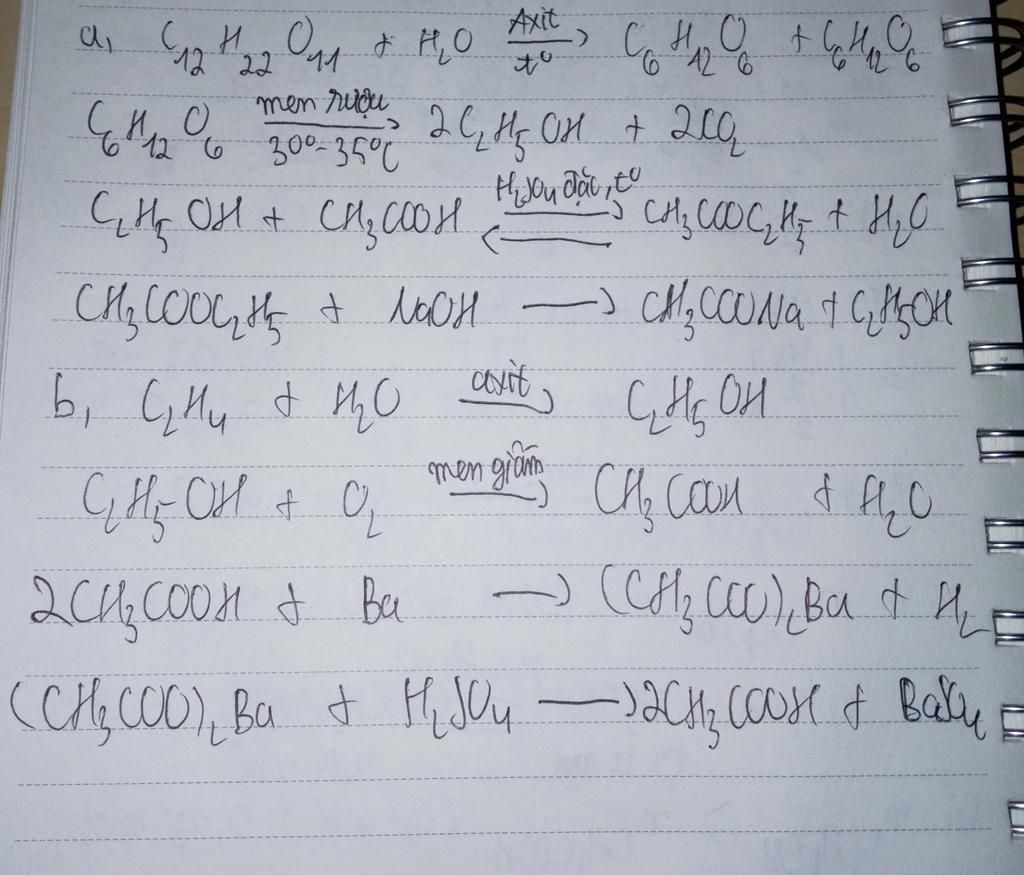 a, C₁₂H₂₂O₁₁ + H₂O Axit t⁰ → C₆H₁₂O₆ + C₆H₁₂O₆
C₆H₁₂O₆ men rượu 30⁰-35⁰C → 2C₂H₅OH + 2CO₂
C₂H₅OH + CH₃COOH H₂SO₄ đặc, t⁰ ⇄ CH₃COOC₂H₅ + H₂O
CH₃COOC₂H₅ + NaOH → CH₃COONa + C₂H₅OH
b, C₂H₄ + H₂O axit → C₂H₅OH
C₂H₅OH + O₂ men giấm → CH₃COOH + H₂O
2CH₃COOH + Ba → (CH₃COO)₂Ba + H₂
(CH₃COO)₂Ba + H₂SO₄ → 2CH₃COOH + BaSO₄